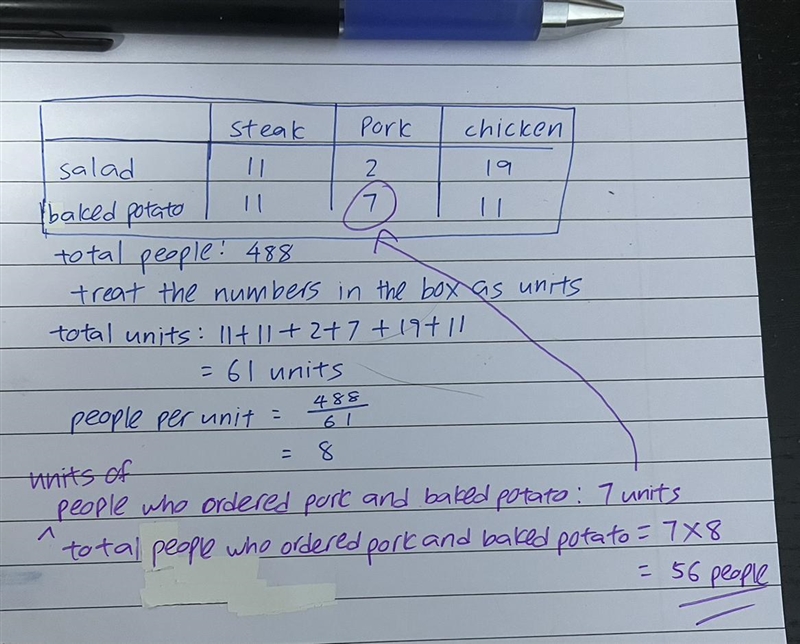 steak Pork chicken
salad 11 2 19
baked potato 11 7 11
total people: 488
treat the numbers in the box as units
total units: 11+11+2+7+19+11
= 61 units
people per unit = 488/61
= 8
units of
people who ordered pork and baked potato: 7 units
^ total people who ordered pork and baked potato = 7×8
= 56 people